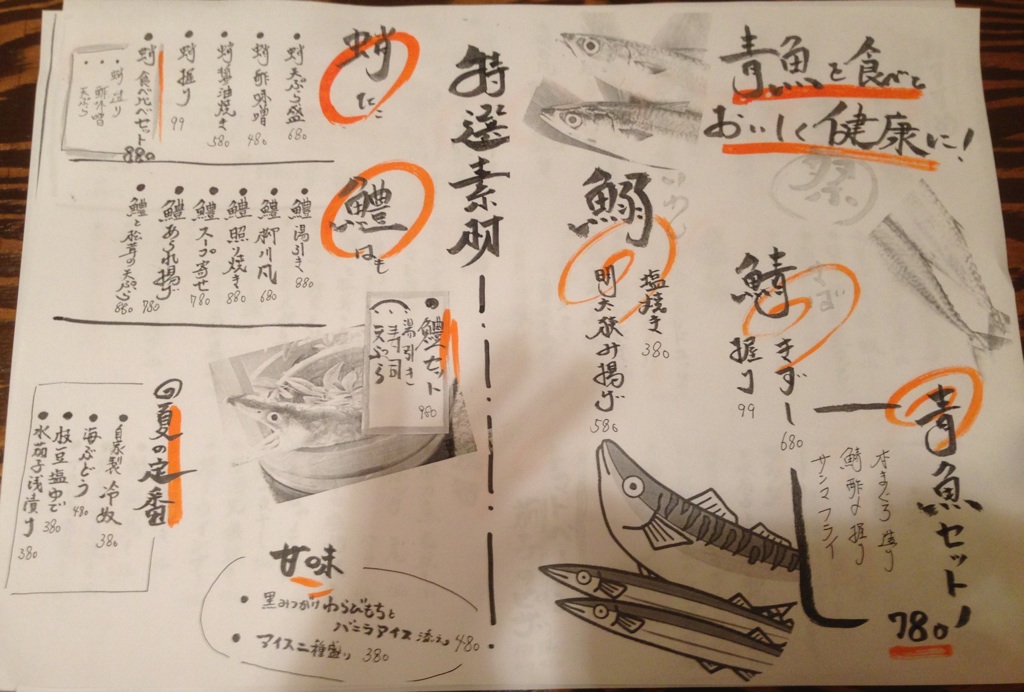 青魚を食べて
おいしく健康に!
青魚セット
780
本まぐろ造り
鯖酢〆握り
サンマフライ
鯖
きずし
680
握り
99
鰯
塩焼き
380
明太挟み揚げ
580
特選素材
蛸
たこ
蛸天ぷら盛
680
蛸酢味噌
480
蛸醤油焼き
380
蛸握り
99
蛸食べ比べセット
880
蛸造り
酢味噌
天ぷら
鱧
はも
鱧湯引き
880
鱧柳川风
680
鱧照り焼き
880
鱧スープ寄せ
780
鱧あられ揚げ
780
鱧と松茸の天ぷら
880
鱧セット
980
湯引き
寿司
天ぷら
夏の定番
自家製冷奴
380
海ぶどう
480
枝豆塩ゆで
380
水茄子浅漬け
380
甘味
黒みつがけわらびもちと
バニラアイス添え 480
アイス二種盛り 380